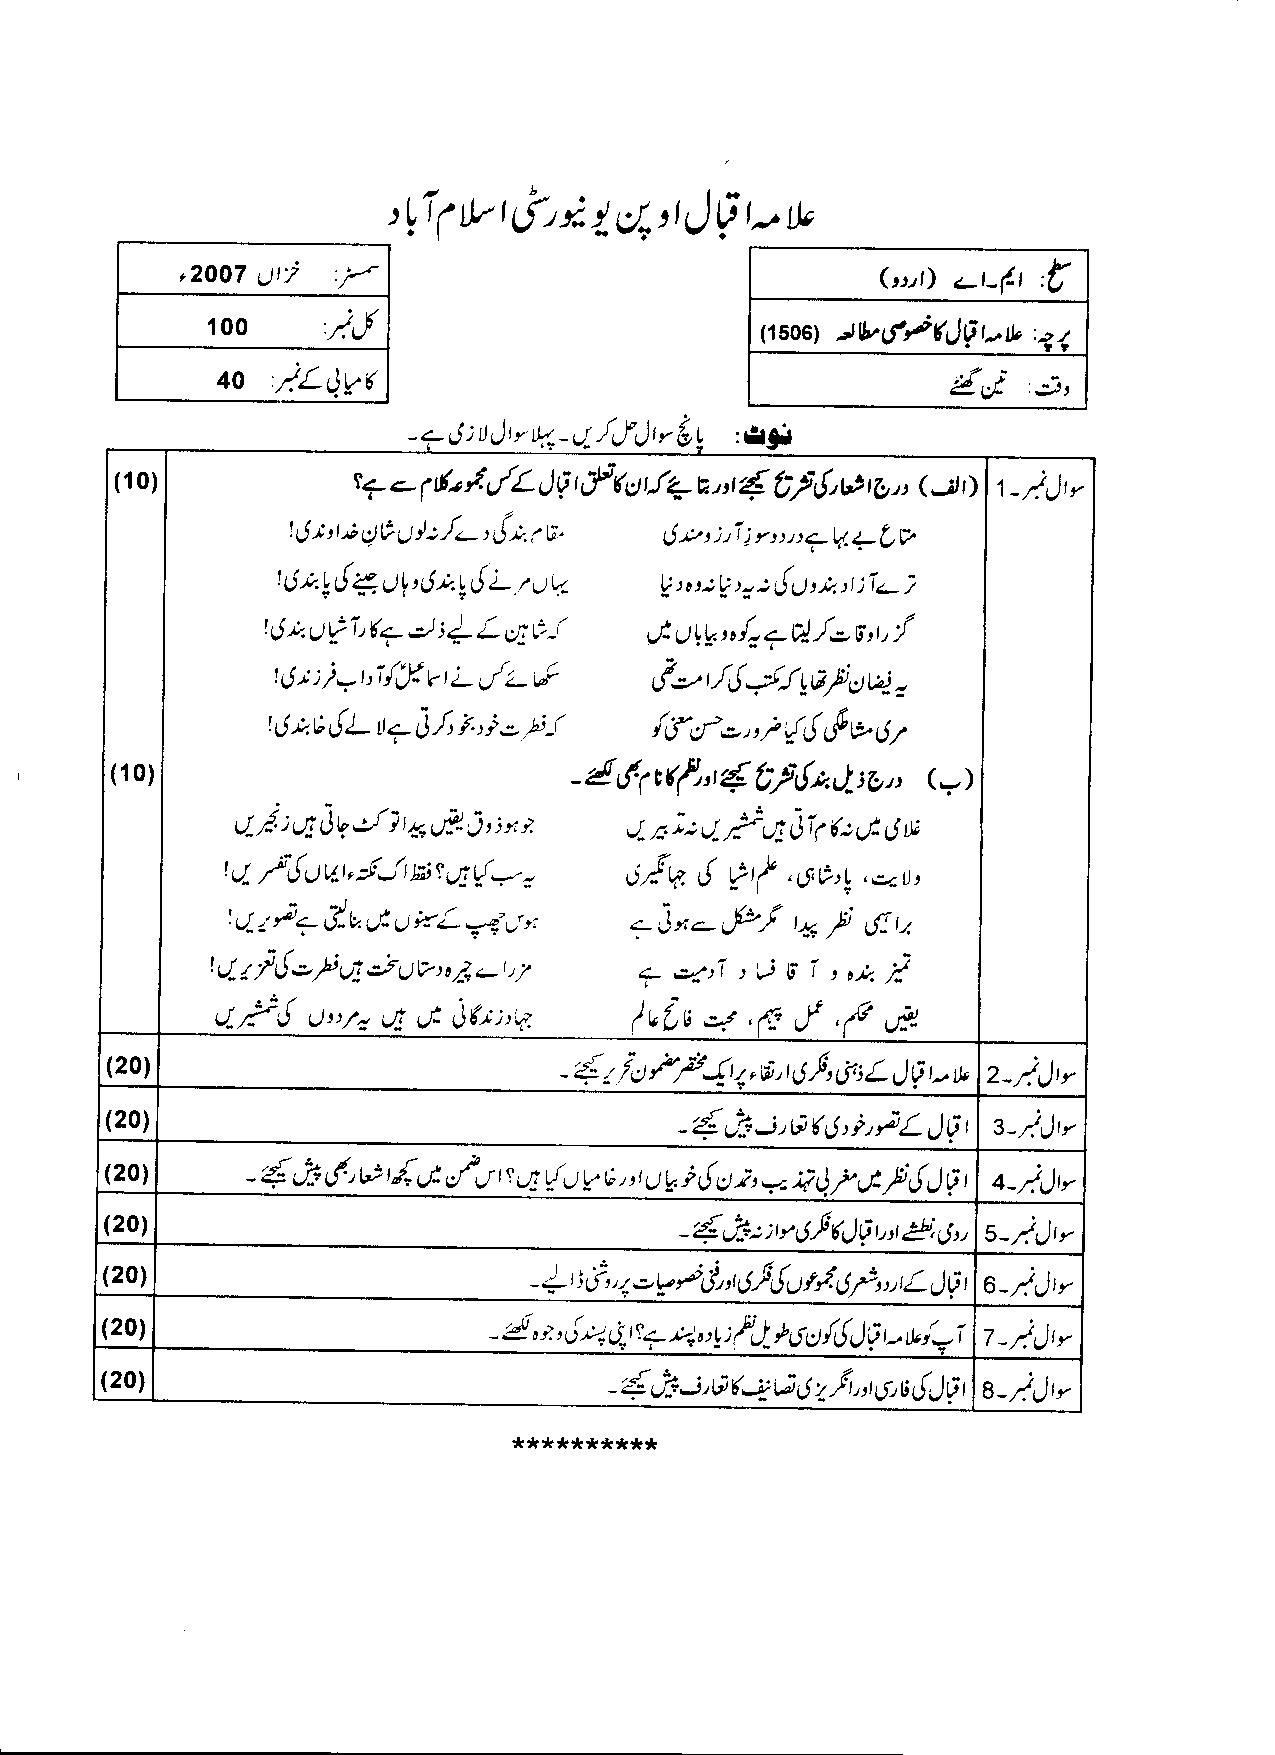 علامہ اقبال اوپن یونیورسٹی اسلام آباد
سطح: ایم۔اے (اردو)
سمسٹر: خزاں 2007ء
پرچہ: علامہ اقبال کا خصوصی مطالعہ (1506)
کل نمبر: 100
وقت: تین گھنٹے
کامیابی کے نمبر: 40
نوٹ: پانچ سوال حل کریں۔ پہلا سوال لازمی ہے۔
سوال نمبر۔1 (الف) درج اشعار کی تشریح کیجئے اور بتایئے کہ ان کا تعلق اقبال کے کس مجموعہ کلام سے ہے؟ (10)
متاع بے بہا ہے درد و سوز آرزو مندی مقام بندگی دے کر نہ لوں شان خداوندی!
ترے آزاد بندوں کی نہ یہ دنیا نہ وہ دنیا یہاں مرنے کی پابندی وہاں جینے کی پابندی!
گزر اوقات کر لیتا ہے یہ کوہ و بیاباں میں کہ شاہین کے لیے ذلت ہے کارِ آشیاں بندی!
یہ فیضان نظر تھا یا کہ مکتب کی کرامت تھی سکھائے کس نے اسماعیلؑ کو آداب فرزندی!
مری مشاطگی کی کیا ضرورت حسن معنی کو کہ فطرت خود بخود کرتی ہے لالے کی حنا بندی!
(ب) درج ذیل بند کی تشریح کیجئے اور نظم کا نام بھی لکھئے۔ (10)
غلامی میں نہ کام آتی ہیں شمشیریں نہ تدبیریں جو ہو ذوق یقیں پیدا تو کٹ جاتی ہیں زنجیریں
ولایت، پادشاہی، علم اشیا کی جہانگیری یہ سب کیا ہیں؟ فقط اک نکتہء ایماں کی تفسریں!
براہیمی نظر پیدا مگر مشکل سے ہوتی ہے ہوس چھپ چھپ کے سینوں میں بنا لیتی ہے تصویریں!
تمیز بندہ و آقا فساد آدمیت ہے حزر اے چیرہ دستاں سخت ہیں فطرت کی تعزیریں!
یقیں محکم، عمل پیہم، محبت فاتح عالم جہاد زندگانی میں ہیں یہ مردوں کی شمشیریں
سوال نمبر۔2 علامہ اقبال کے ذہنی و فکری ارتقاء پر ایک مختصر مضمون تحریر کیجئے۔ (20)
سوال نمبر۔3 اقبال کے تصور خودی کا تعارف پیش کیجئے۔ (20)
سوال نمبر۔4 اقبال کی نظر میں مغربی تہذیب و تمدن کی خوبیاں اور خامیاں کیا ہیں؟ اس ضمن میں کچھ اشعار بھی پیش کیجئے۔ (20)
سوال نمبر۔5 رومی، نطشے اور اقبال کا فکری موازنہ پیش کیجئے۔ (20)
سوال نمبر۔6 اقبال کے اردو شعری مجموعوں کی فکری اور فنی خصوصیات پر روشنی ڈالیے۔ (20)
سوال نمبر۔7 آپ کو علامہ اقبال کی کون سی طویل نظم زیادہ پسند ہے؟ اپنی پسند کی وجوہ لکھئے۔ (20)
سوال نمبر۔8 اقبال کی فارسی اور انگریزی تصانیف کا تعارف پیش کیجئے۔ (20)
**********